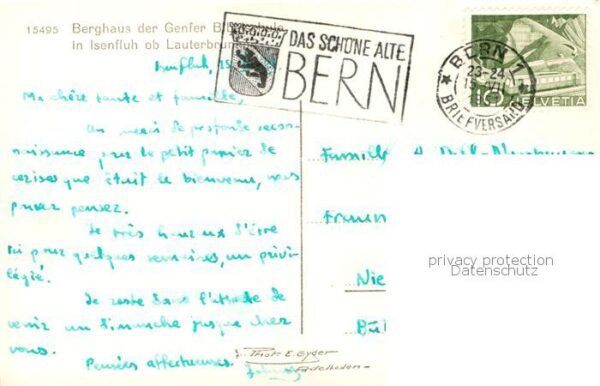 15495 Berghaus der Genfer
in Isenfluh ob Lauterbrun
DAS SCHÖNE ALTE
BERN
BERN 1
23-24
15. VII
BRIEFVERSAND
10 HELVETIA
Isenfluh, 15
Ma chère tante et famille,
Un merci de profonde recon-
naissance pour le petit panier de
cerises que était le bienvenu, vous
pouvez pensez.
Je très heureux d'être
ici pour quelques semaines, un privi-
légié.
Je reste dans l'attente de
venir un dimanche jusque chez
vous.
Pensées affectueuses.
Famille
Nie
privacy protection
Datenschutz
Phot. E. Gyger
Adelboden